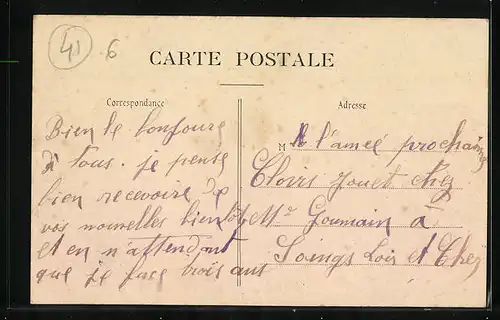 41 6
CARTE POSTALE
Correspondance
Adresse
Bien le bonjoure
à tous. je pense
bien recevoire de
vos nouvelles bientot
et en n'attendant
que je face trois ans
M A l'ameé prochaine
Clovis Jouet chez
Mr Goumain à
Soings Loir et Cher